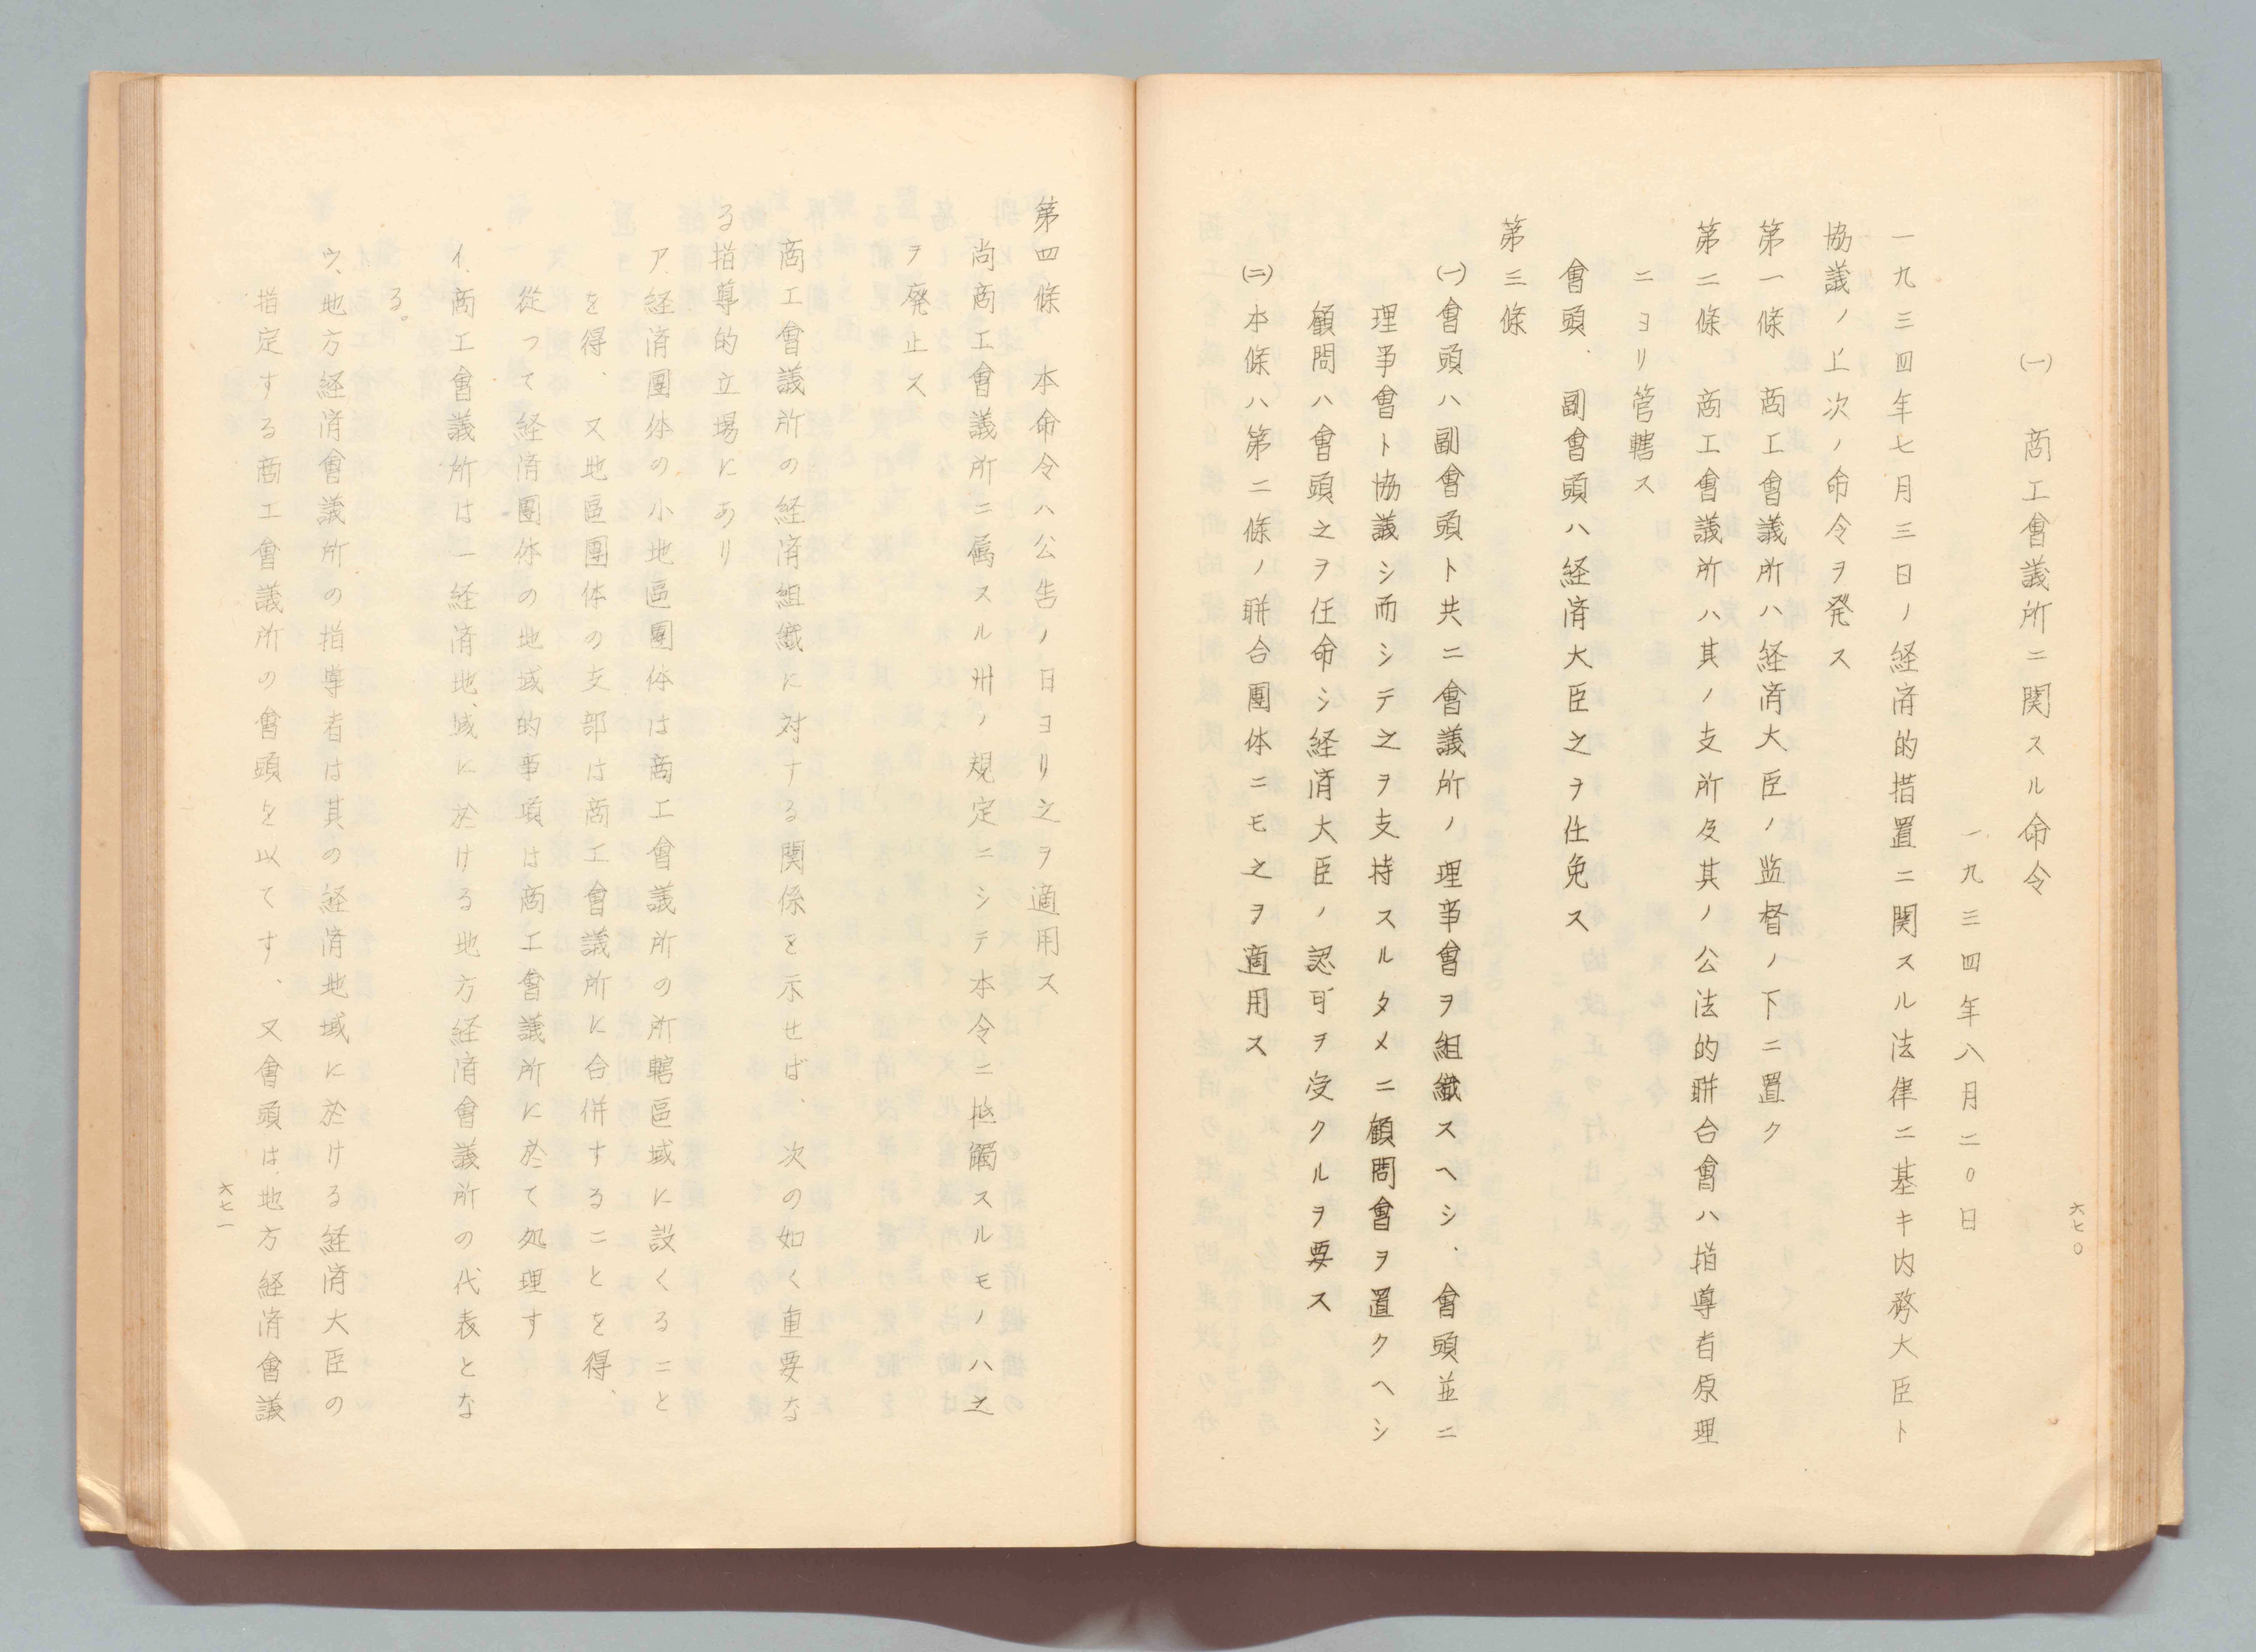 六七〇
㈠　商工會議所ニ関スル命令
一九三四年八月二〇日
一九三四年七月三日ノ経済的措置ニ関スル法律ニ基キ内務大臣ト
協議ノ上次ノ命令ヲ発ス
第一條　商工會議所ハ経済大臣ノ監督ノ下ニ置ク
第二條　商工會議所ハ其ノ支所及其ノ公法的聯合會ハ指導者原理
ニヨリ管轄ス
會頭、副會頭ハ経済大臣之ヲ任免ス
第三條
㈠會頭ハ副會頭ト共ニ會議所ノ理事會ヲ組織スヘシ、會頭並ニ
理事會ト協議シ而シテ之ヲ支持スルタメニ顧問會ヲ置クヘシ
顧問ハ會頭之ヲ任命シ経済大臣ノ認可ヲ受クルヲ要ス
㈡本條ハ第二條ノ聯合團体ニモ之ヲ適用ス
第四條　本命令ハ公告ノ日ヨリ之ヲ適用ス
尚商工會議所ニ属スル州ノ規定ニシテ本令ニ抵觸スルモノハ之
ヲ廃止ス
商工會議所の経済組織に対する関係を示せば、次の如く重要な
る指導的立場にあり
ア、経済團体の小地區團体は商工會議所の所轄區域に設くること
を得、又地區團体の支部は商工會議所に合併することを得、
從って経済團体の地域的事項は商工會議所に於て処理す
イ、商工會議所は一経済地域に於ける地方経済會議所の代表とな
る。
ウ、地方経済會議所の指導者は其の経済地域に於ける経済大臣の
指定する商工會議所の會頭を以てす、又會頭は地方経済會議
六七一